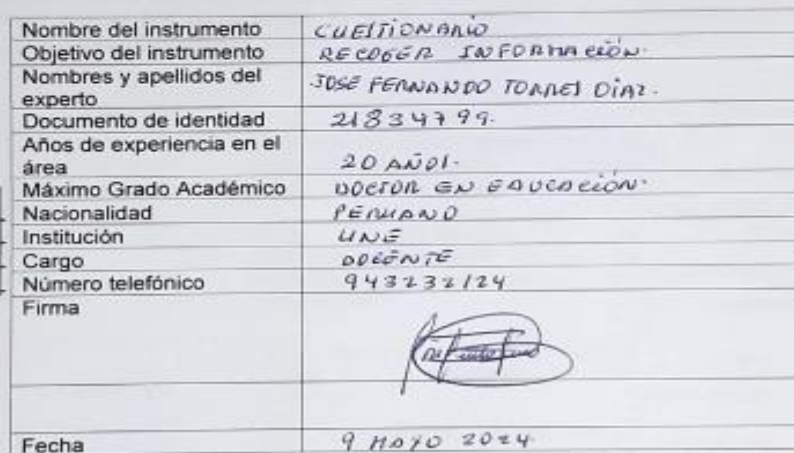 Nombre del instrumento CUESTIONARIO
Objetivo del instrumento RECOGER INFORMACIÓN.
Nombres y apellidos del
experto JOSE FERNANDO TORRES DIAZ.
Documento de identidad 21834799.
Años de experiencia en el
área 20 AÑOS.
Máximo Grado Académico DOCTOR EN EDUCACIÓN.
Nacionalidad PERUANO
Institución UNE
Cargo DOCENTE
Número telefónico 943232124
Firma
Fecha 9 MAYO 2024